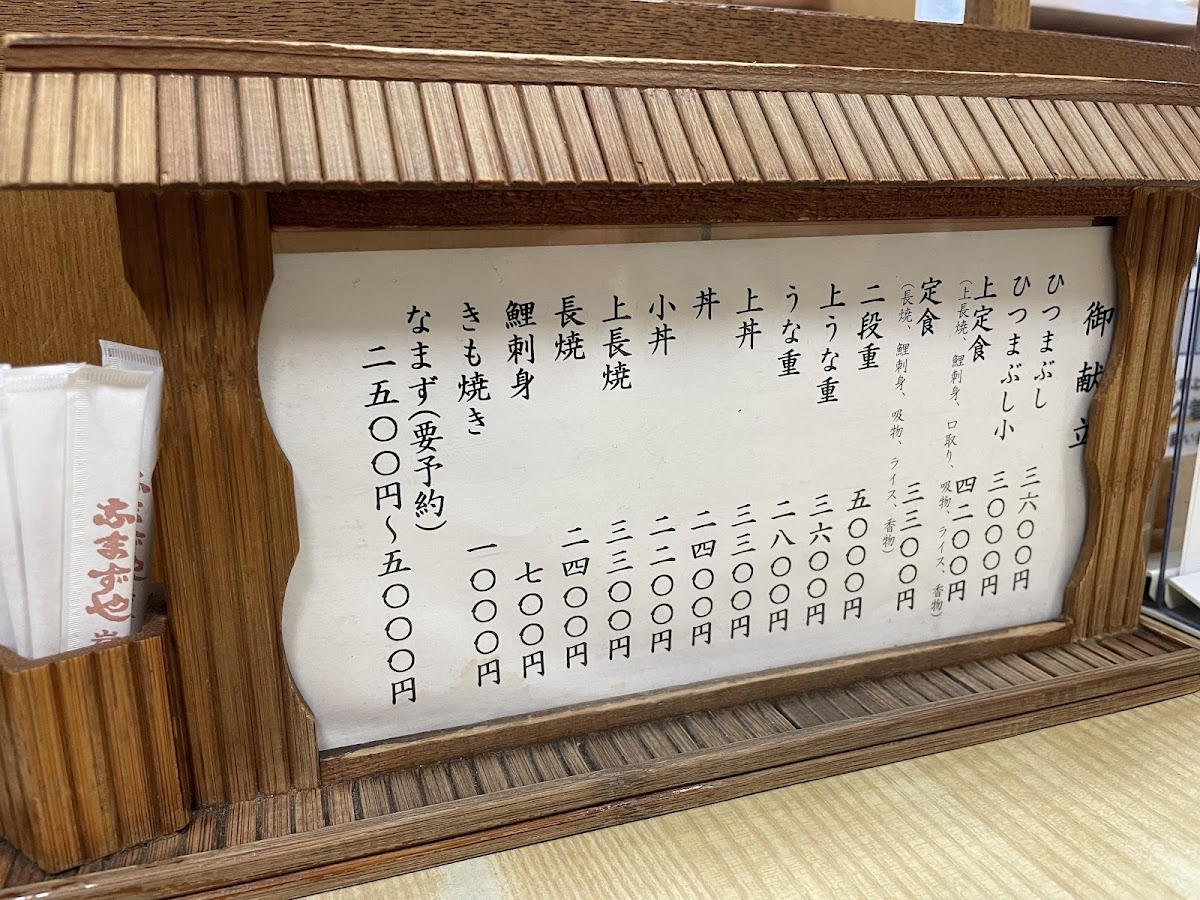 御献立
ひつまぶし 三六〇〇円
ひつまぶし小 三〇〇〇円
上定食 四二〇〇円
(上長焼、鯉刺身、口取り、吸物、ライス、香物)
定食 三三〇〇円
(長焼、鯉刺身、吸物、ライス、香物)
二段重 五〇〇〇円
上うな重 三六〇〇円
うな重 二八〇〇円
上丼 三三〇〇円
丼 二四〇〇円
小丼 二二〇〇円
上長焼 三三〇〇円
長焼 二四〇〇円
鯉刺身 七〇〇円
きも焼き 一〇〇〇円
なまず(要予約)
二五〇〇円～五〇〇〇円
なまずや